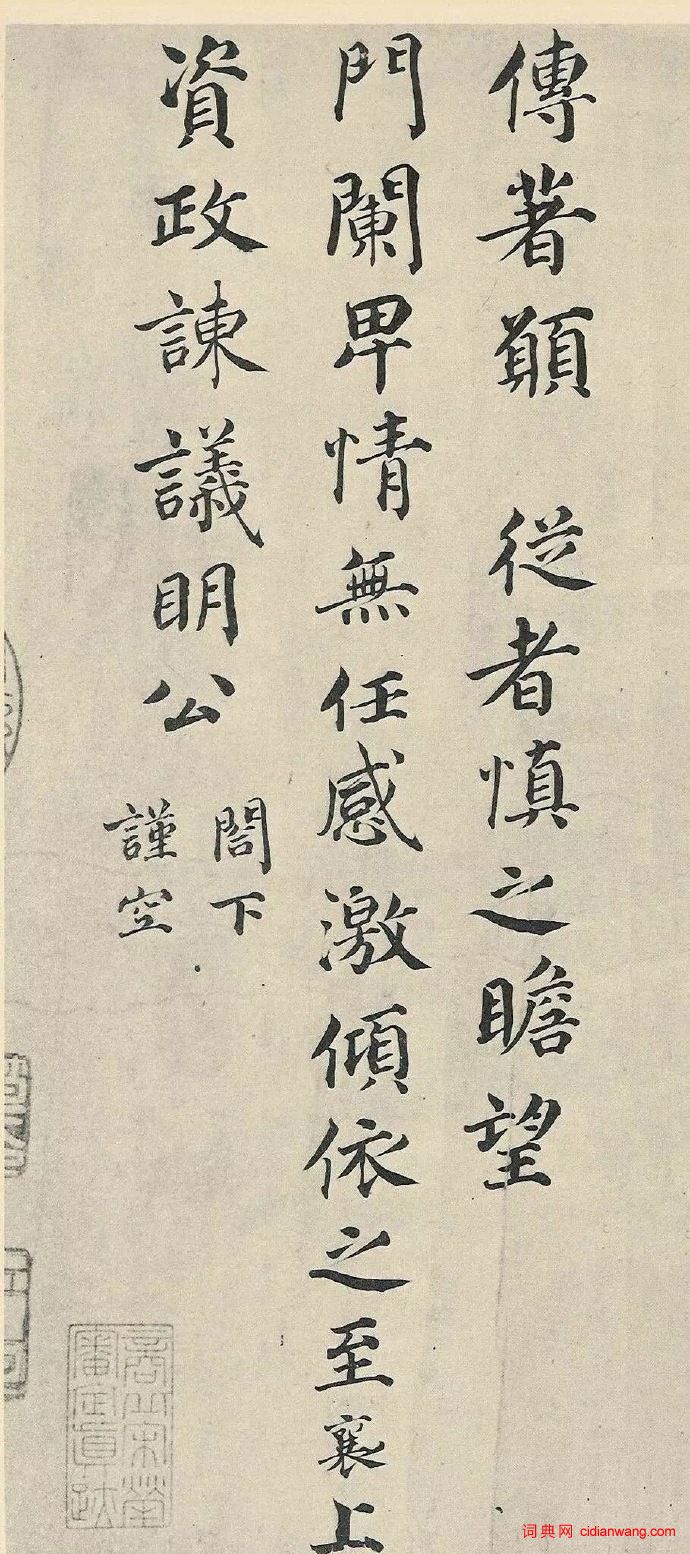 傳著顛 従者慎之瞻望
門闌卑情無任感激傾依之至襄上
資政諫議明公
閤下
謹空
商丘宋犖
審定真跡
词典网 cidianwang.com